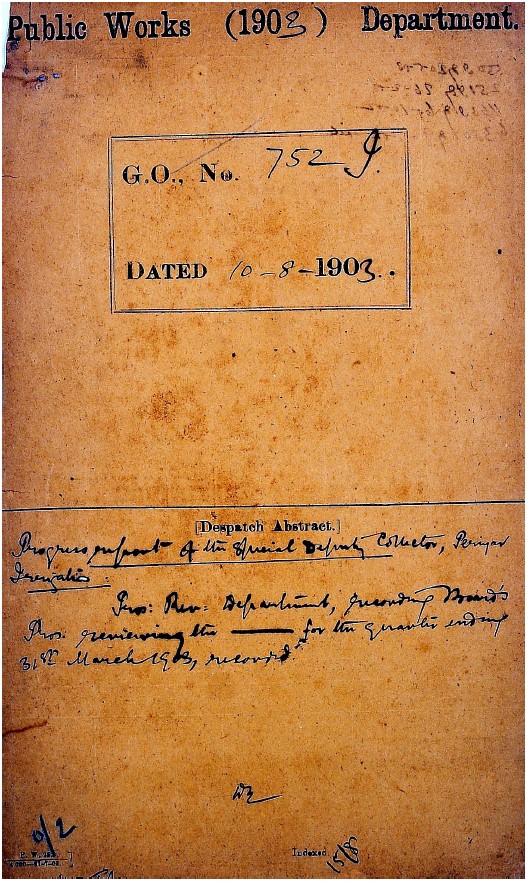 Public Works (1903) Department.
G.O., No. 752 I.
DATED 10-8-1903.
[Despatch Abstract.]
Progress report of the Special Deputy Collector, Periyar
Irrigation:
Pros: Rev: Department, recording Board's
Pros. reviewing the —— for the quarter ending
31st March 1903, recorded.
0/2
Indexed 15/8